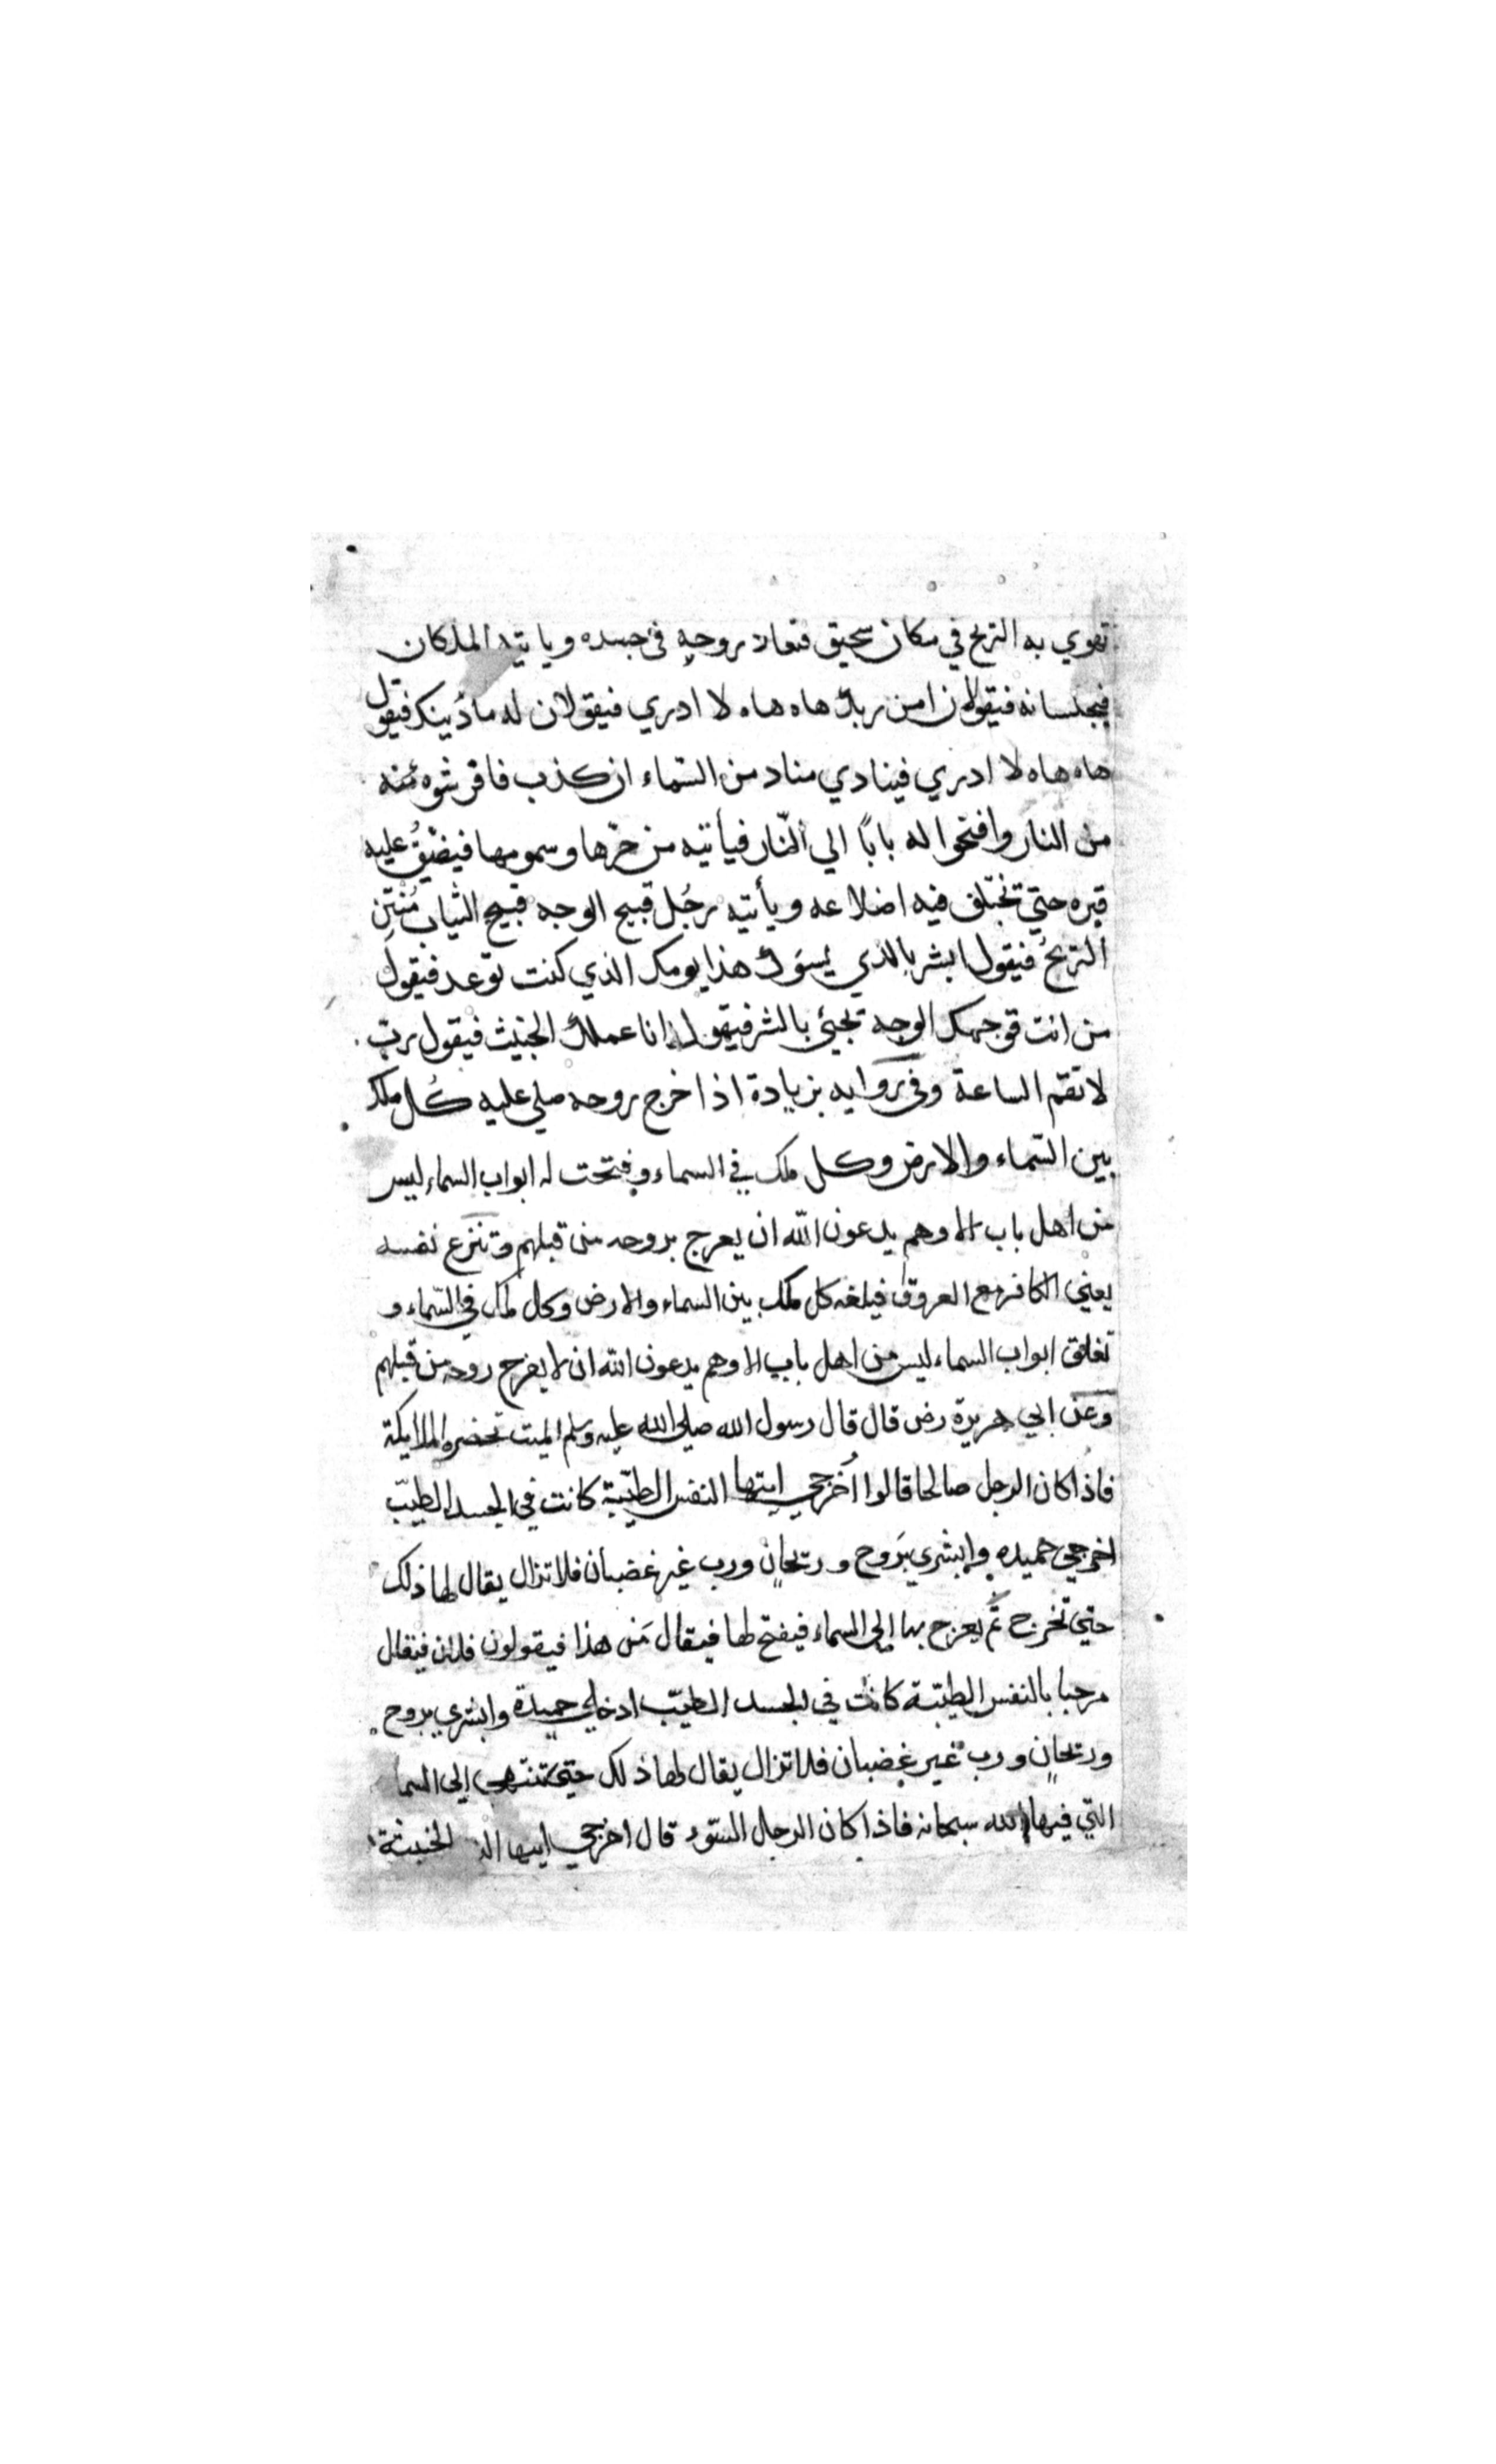 تهوي به الريح في مكان سحيق فتعاد روحه في جسده وياتيه الملكان
فيجلسانه فيقولان من ربك هاه هاه لا ادري فيقولان له ما دينك فيقول
هاه هاه لا ادري فينادي مناد من السّماء ان كذب فافرشوه
من النار وافتحوا له بابًا الي النّار فيأتيه من حرّها وسمومها فيضيّقُ عليه
قبره حتي تختلف فيه اضلاعه ويأتيه رجُل قبيح الوجه قبيح الثياب مُنْتِن
الريحُ فيقول ابشر بالذي يسوك هذا يومك الذي كنت توعد فيقول
من انت فوجهك الوجه تجيئ بالشر فيقول انا عملك الخبيث فيقول ربّ
لا تقم الساعة وفي روايه بزيادة اذا خرج روحه صلي عليه كُل ملك
بين السّماء والارض وكل ملك في السماء وفتحت له ابواب السماء ليس
من اهل باب الا وهم يدعون الله ان يعرج بروحه من قبلهم وتنزع نفسه
يعني الكافر مع العروق فيلعنه كل ملك بين السماء والارض وكل ملك في السّماء و
تغلق ابواب السماء ليس من اهل باب الا وهم يدعون الله ان لا يعرج روحه من قبلهم
وعن ابي هريرة رض قال قال رسول الله صلي الله عليه وسلم الميت تحضره الملايكة
فاذا كان الرجل صالحا قالوا اُخرجي ايتها النفس الطيّبة كانت في الجسد الطيّب
اخرجي حميده وابشري بَروح وريحانٍ ورب غير غضبان فلا تزال يقال لها ذلك
حتي تخرج ثمّ يعرج بها إلي السماء فيفتح لها فيقال مَن هذا فيقولون فلان فيقال
مرحبا بالنفس الطيّبة كانت في الجسد الطيّب ادخلي حميدة وابشري بروح
وريحانٍ ورب غير غضبان فلا تزال يقال لها ذلك حتي تنتهي إلي السما
التي فيها الله سبحانه فاذا كان الرجل السّوء قال اخرجي ايتها الخبيثة